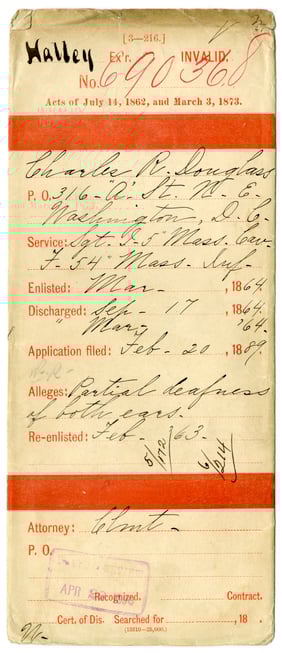 [3—216.]
Halley Ex'r. INVALID.
No. 690368
Acts of July 14, 1862, and March 3, 1873.
Charles R. Douglass
P. O. 316 - A. St. N. E.
Washington, D. C.
Service: Sgt. I - 5" Mass. Cav
F - 54" Mass. Inf -
Enlisted: Mar - , 1864.
Discharged: Sep - 17 , 1864.
" Mar, '64.
Application filed: Feb - 20 , 1889.
Alleges: Partial deafness
of both ears.
Re-enlisted: Feb - '63.
5/172 6/214
Attorney: Clmt -
P. O.
APR
Recognized. Contract.
Cert. of Dis. Searched for , 18 .